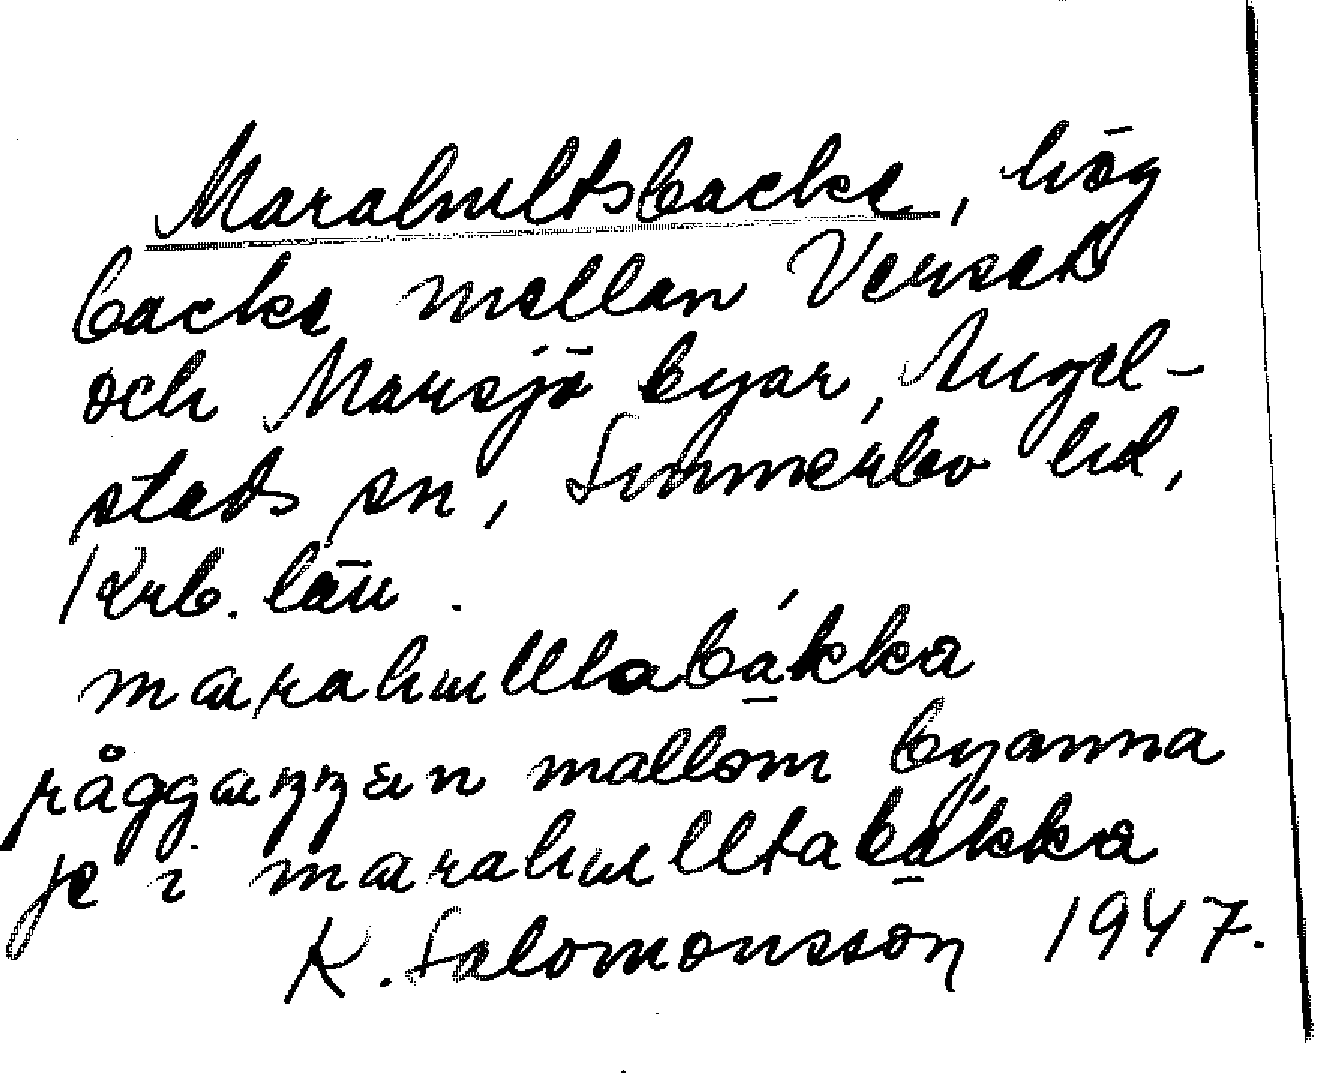 Marahultsbacke, hög
backe mellan Vensed
och Marsjö byar, Angel-
stads sn, Sunnerbo hd,
Krb. län.
marahulltabákka
råggaŋŋen mallom byanna
je i marahulltabákka
K. Salomonsson 1947.